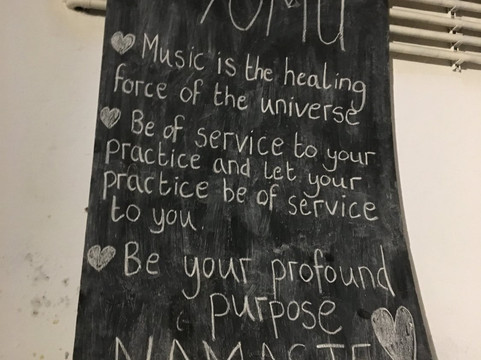 Music is the healing
force of the universe
Be of service to your
practice and let your
practice be of service
to you.
Be your profound
purpose
NAMASTE